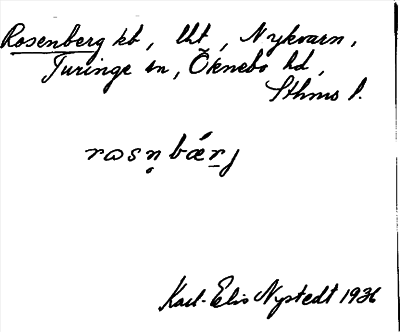 Rosenberg kb, lht, Nykvarn,
Turinge sn, Öknebo hd,
Sthms l.
rωsn̥bǽr̲j
Karl-Elis Nystedt 1936